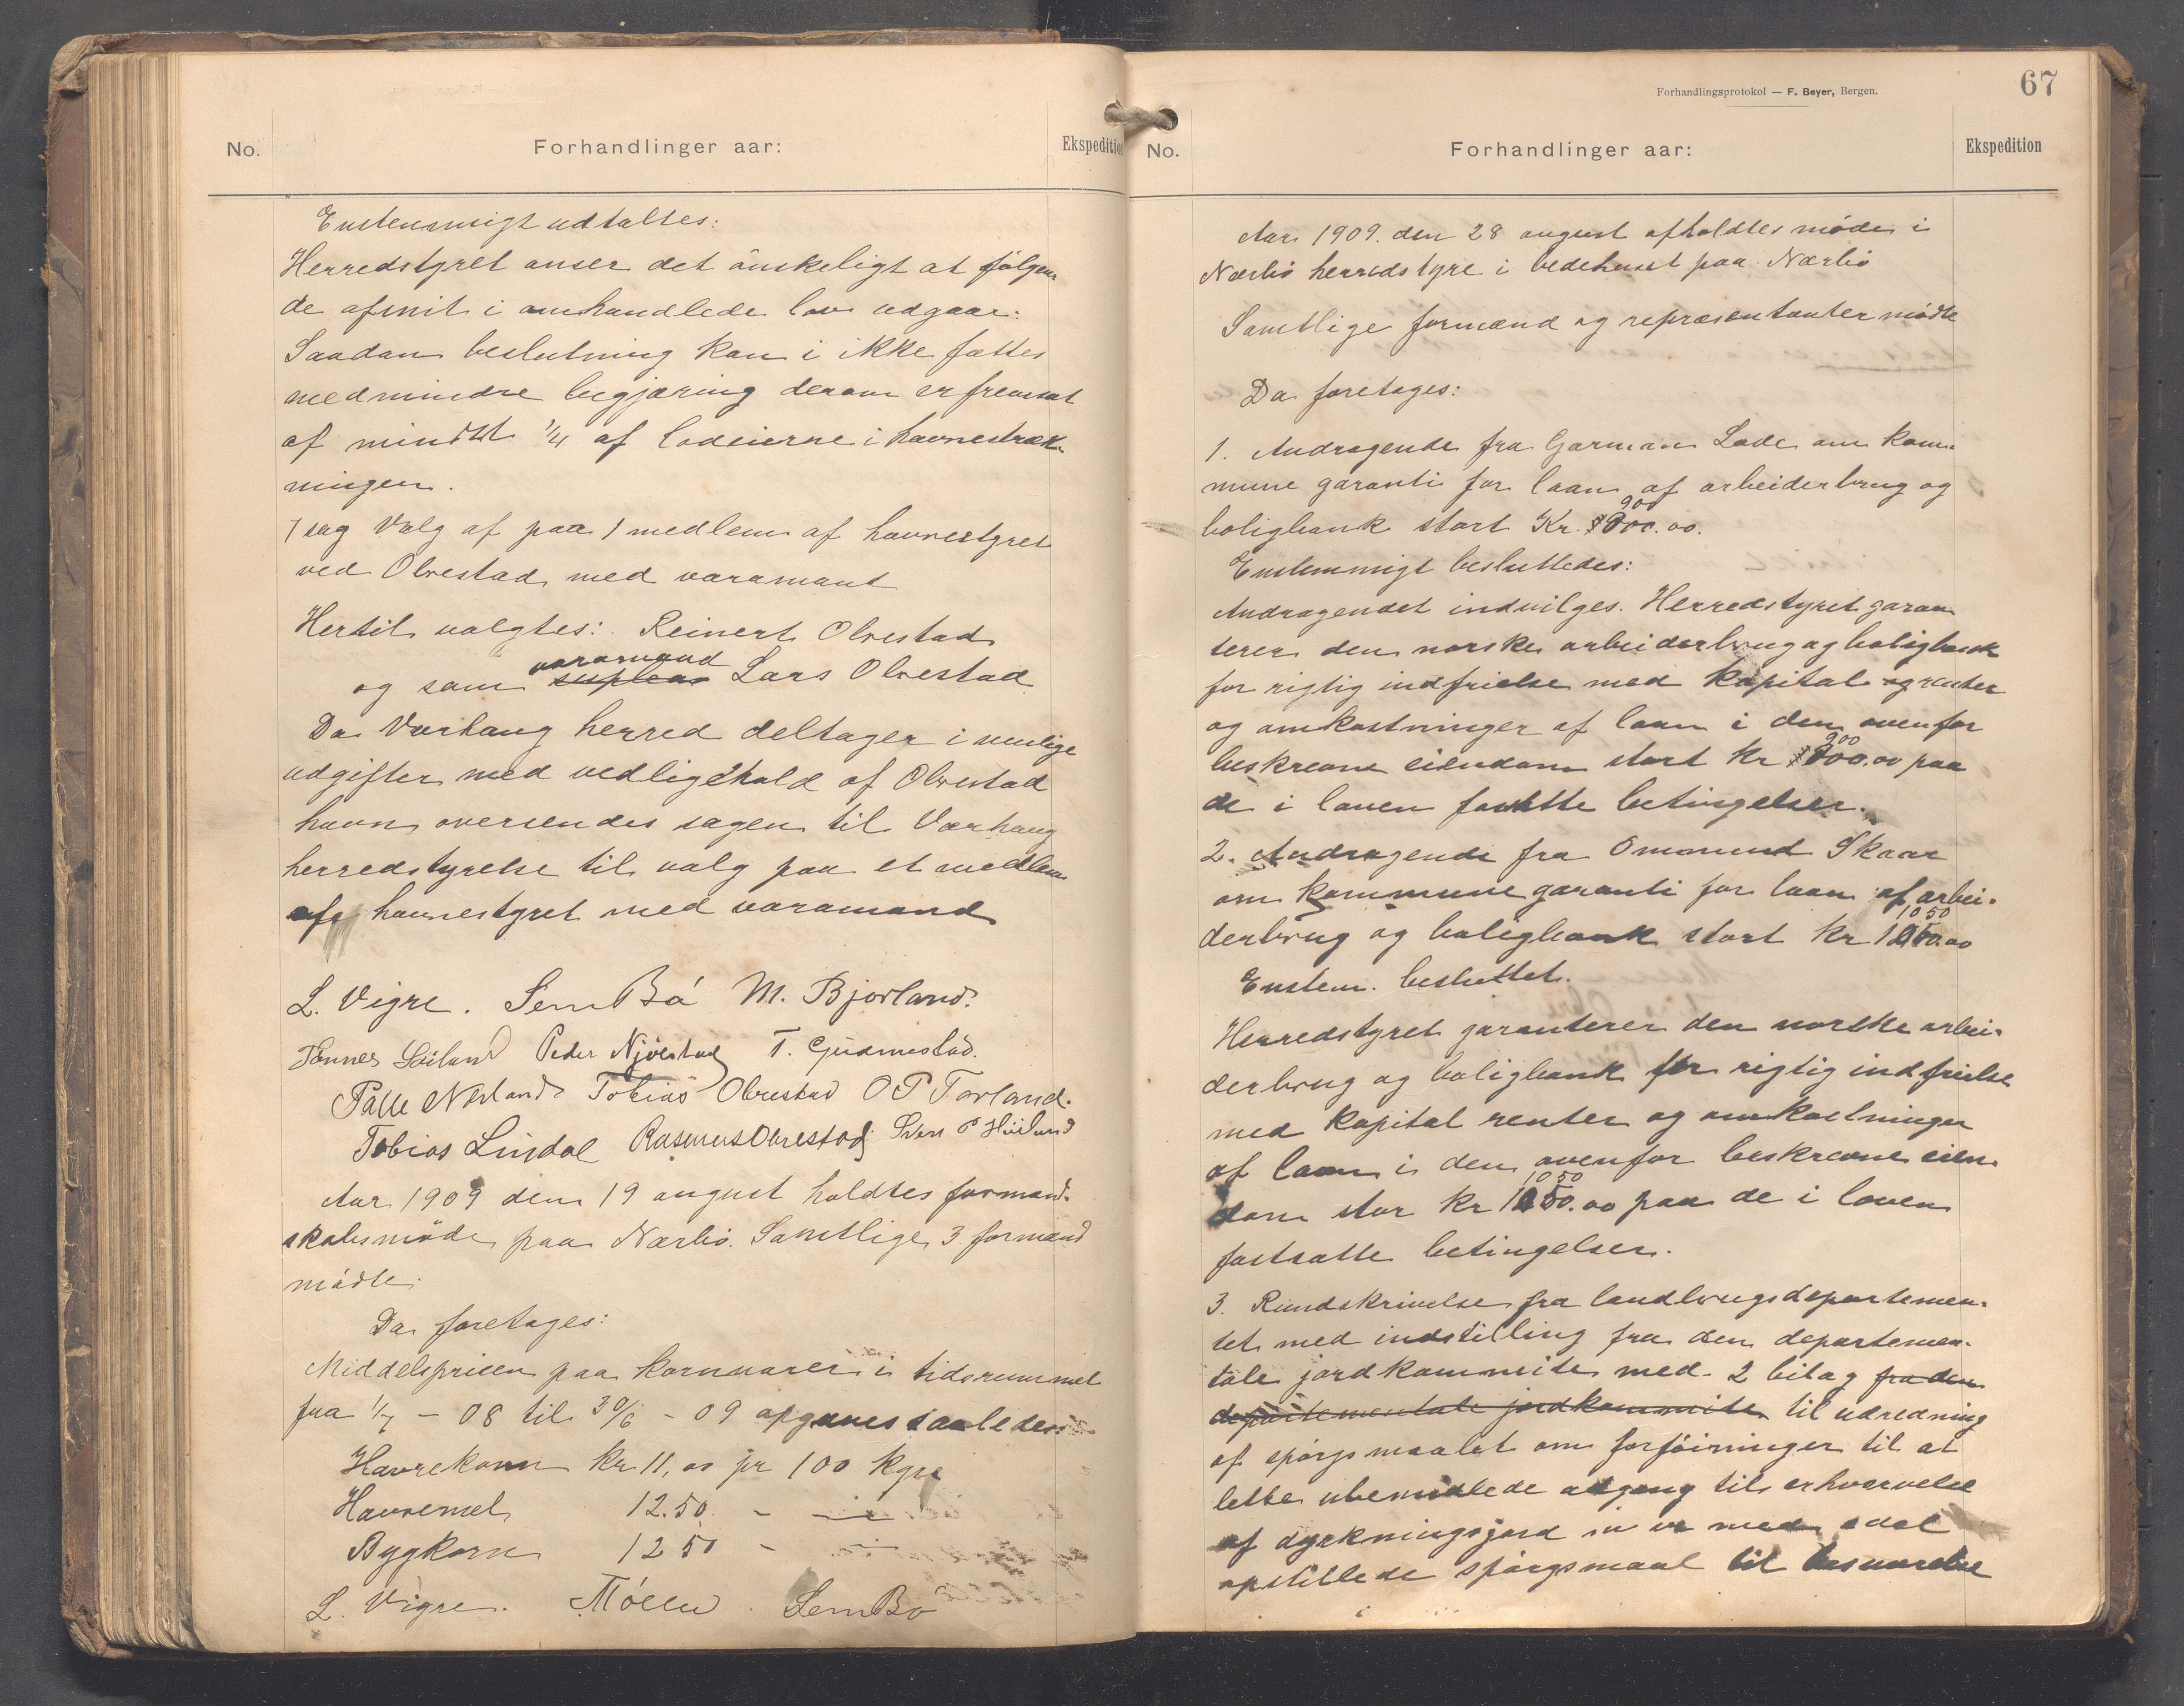 No.
Forhandlinger aar:
Ekspedition
Enstemmigt udtaltes:
Herredstyret anser det önskeligt at fölgen
de afsnit i omhandlede lov udgaar:
Saadan beslutning kan i ikke fattes
medmindre begjæring derom er fremsat
af mindst 1/4 af lodeierne i havnestræk-
ningen.
7 sag Valg af paa 1 medlem af havnestyret
ved Obrestad med varamand
Hertil valgtes: Reinert Obrestad
varamand
og som suplean Lars Obrestad
Da Varhaug herred deltager i
udgifter med vedligehold af Obrestad
havn oversendes sagen til Varhaug
herredstyrelse til valg paa et medlem
af havnestyret med varamand
L. Vigre. Sem Bö M. Bjorland.
Tönnes Söiland Peder Njölstad T. Gudmestad.
Palle Nærland Tobias Obrestad O P Torland.
Tobias Lindal Rasmus Obrestad Sven P Höiland
Aar 1909 den 19 august holdtes formand-
skabsmöde paa Nærbö. Samtlige 3 formænd
mödte.
Da foretages:
Middelprisen paa kornvarer i tidsrummet
fra 1/7 - 08 til 30/6 - 09 opgives saaledes:
Havrekorn kr 11,00 pr 100 kgr
Havremel 12.50 - —
Bygkorn 12 50 - —
L. Vigre. Möller Sem Bö
Forhandlingsprotokol — F. Beyer, Bergen.
67
No.
Forhandlinger aar:
Ekspedition
Aar 1909. den 28 august afholdtes möde i
Nærbö herredstyre i bedehuset paa Nærbö
Samtlige formænd og repræsentanter mödte
Da foretages:
1. Andragende fra Garman Lode om kom-
mune garanti for laan af arbeiderbrug og
900
boligbank stort Kr. 800.00.
Enstemmigt besluttedes:
Andragendet indvilges. Herredstyret garan
terer den norske arbeiderbrug og boligbank
for rigtig indfrielse med kapital og renter
og omkostninger af laan i den ovenfor
900
beskrevne eiendom stort kr 800.00 paa
de i loven fastsatte betingelser.
2. Andragende fra Ommund Skaar
om kommune garanti for laan af arbei-
1050
derbrug og boligbank stort kr 1050.00
Enstem. besluttet.
Herredstyret garanterer den norske arbei-
derbrug og boligbank for rigtig indfrielse
med kapital renter og omkostninger
af laan i den ovenfor beskrevne eien-
1050
dom stor kr 1050.00 paa de i loven
fastsatte betingelser.
3. Rundskrivelse fra landbrugsdepartemen-
tet med indstilling fra den departemen-
tale jordkommite med 2 bilag fra den
departementale jordkommite til udredning
af spörgsmaalet om forföininger til at
lette ubemidlede adgang til erhvervelse
af dyrkningsjord m v med edel
opstillede spörgsmaal til besvarelse